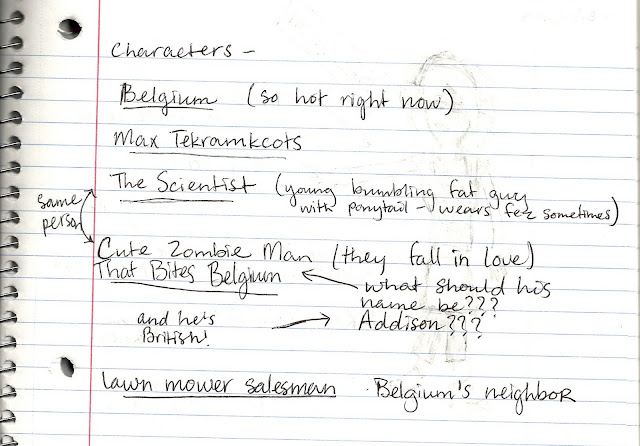 Characters -
Belgium (so hot right now)
Max Tekramkcots
The Scientist (young bumbling fat guy
with ponytail - wears fez sometimes)
same
person
Cute Zombie Man (they fall in love)
That Bites Belgium
what should his
name be???
and he's
British!
Addison???
Lawn mower salesman Belgium's neighbor